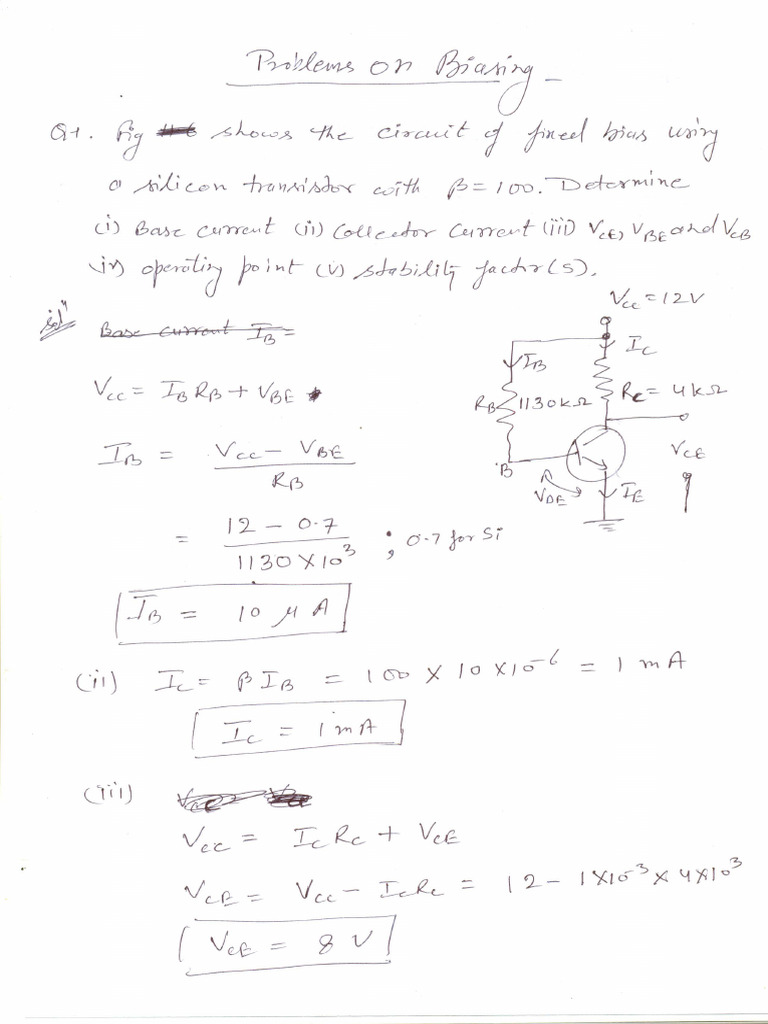 Problems on Biasing
Q1. Fig shows the circuit of fixed bias using
a silicon transistor with β=100. Determine
(i) Base current (ii) Collector Current (iii) VCE, VBE and VCB
iv) operating point (v) stability factor(S).
Solⁿ Base current IB =
VCC = 12V
IC
IB
VCC = IB RB + VBE
RB 1130kΩ
RC = 4kΩ
IB = VCC - VBE / RB
B
VBE
IE
VCE
= 12 - 0.7 / 1130 X 10³ ; 0.7 for Si
IB = 10 μA
(ii) IC = β IB = 100 X 10 X 10⁻⁶ = 1 mA
IC = 1 mA
(iii)
VCC = IC RC + VCE
VCE = VCC - IC RC = 12 - 1X10⁻³ X 4X10³
VCE = 8 V